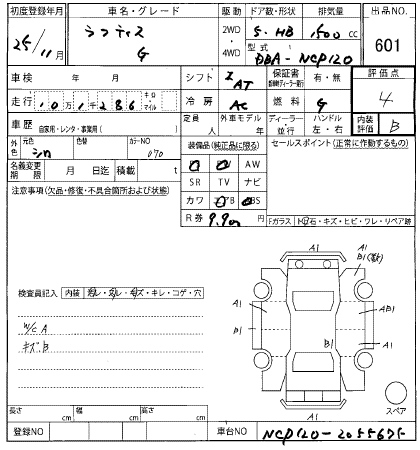 初度登録年月 車名・グレード 駆動 ドア数・形状 排気量 出品NO.
25/11月 ラフティス G 2WD 4WD 5.HB 1500cc 601
型式 DBA-NCP120
車検 年 月 シフト IAT 保証書 有・無 評価点
走行 10万1千286 キロ マイル 冷房 AC 燃料 G 4
車歴 自家用・レンタ・事業用( ) 定員 人 外車モデル 年 ディーラー・並行 ハンドル 左・右 内装評価 B
外色 元色 シロ 色替 カラーNO 070 装備品(純正品に限る) セールスポイント(正常に動作するもの)
名義変更期限 月 日迄 積載 t AW
SR TV ナビ
注意事項(欠品・修復・不具合箇所および状態) カワ
R券 9.9 Fガラス トビ石・キズ・ヒビ・ワレ・リペア跡
A1
B1
検査員記入 内装 ・キズ・キレ・コゲ・穴
A1 AB1
W/C A B1
キズB B1 A1
A1 スペア
長さ cm 幅 cm 高さ cm
登録NO 車台NO NCP120-2055675